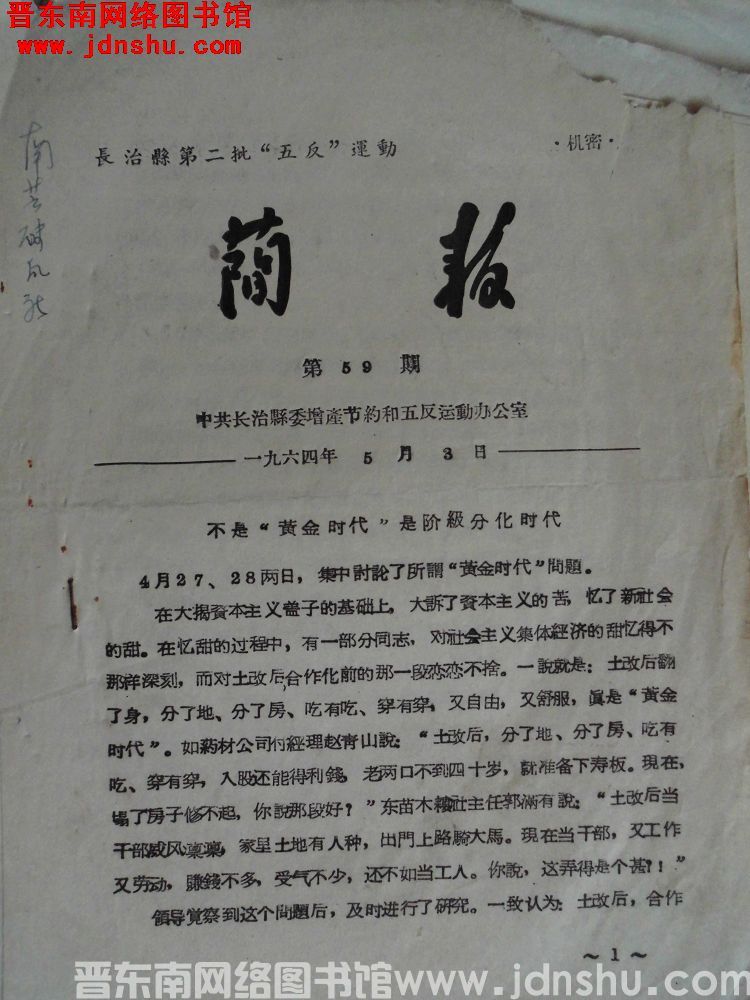 晋东南网络图书馆
www.jdnshu.com
長治縣第二批“五反”運動
·机密·
簡報
第59期
中共长治縣委增產节約和五反运動办公室
一九六四年 5 月 3 日
不是“黃金时代”是阶級分化时代
4月27、28两日，集中討論了所謂“黃金时代”問題。
在大揭資本主义盖子的基础上，大訴了資本主义的苦，忆了新社会
的甜。在忆甜的过程中，有一部分同志，对社会主义集体經济的甜忆得不
那样深刻，而对土改后合作化前的那一段恋恋不捨。一說就是：土改后翻
了身，分了地、分了房、吃有吃、穿有穿，又自由，又舒服，眞是“黃金
时代”。如药材公司付經理赵青山說：“土改后，分了地、分了房、吃有
吃、穿有穿，入股还能得利錢，老两口不到四十岁，就准备下寿板。現在，
塌了房子修不起，你說那段好？”东苗木耧社主任郭滿有說：“土改后当
干部威风凛凛，家里土地有人种，出門上路騎大馬。現在当干部，又工作
又劳动，賺錢不多，受气不少，还不如当工人。你說，这弄得是个甚？！”
領导覚察到这个問題后，及时进行了研究。一致认为：土改后，合作
～1～
晋东南网络图书馆www.jdnshu.com